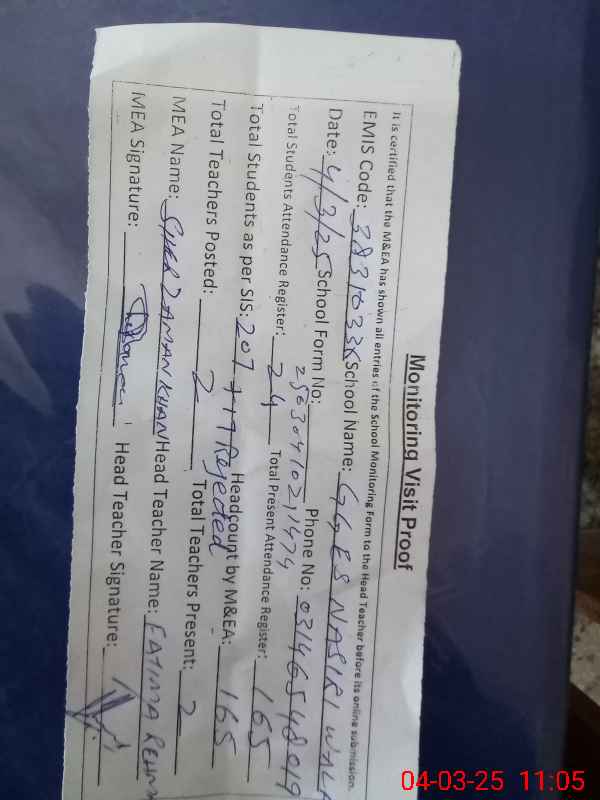 Monitoring Visit Proof
It is certified that the M&EA has shown all entries of the School Monitoring Form to the Head Teacher before its online submission.
EMIS Code: 3831033 School Name: GGES NASIRI WALA
Date: 4/3/25 School Form No: 256304102,1474 Phone No: 03146548019
Total Students Attendance Register: 24 Total Present Attendance Register: 165
Total Students as per SIS: 207 + 17 Rejected Headcount by M&EA: 165
Total Teachers Posted: 2 Total Teachers Present: 2
MEA Name: SHER ZAMAN KHAN Head Teacher Name: FATIMA
MEA Signature: Head Teacher Signature:
04-03-25 11:05